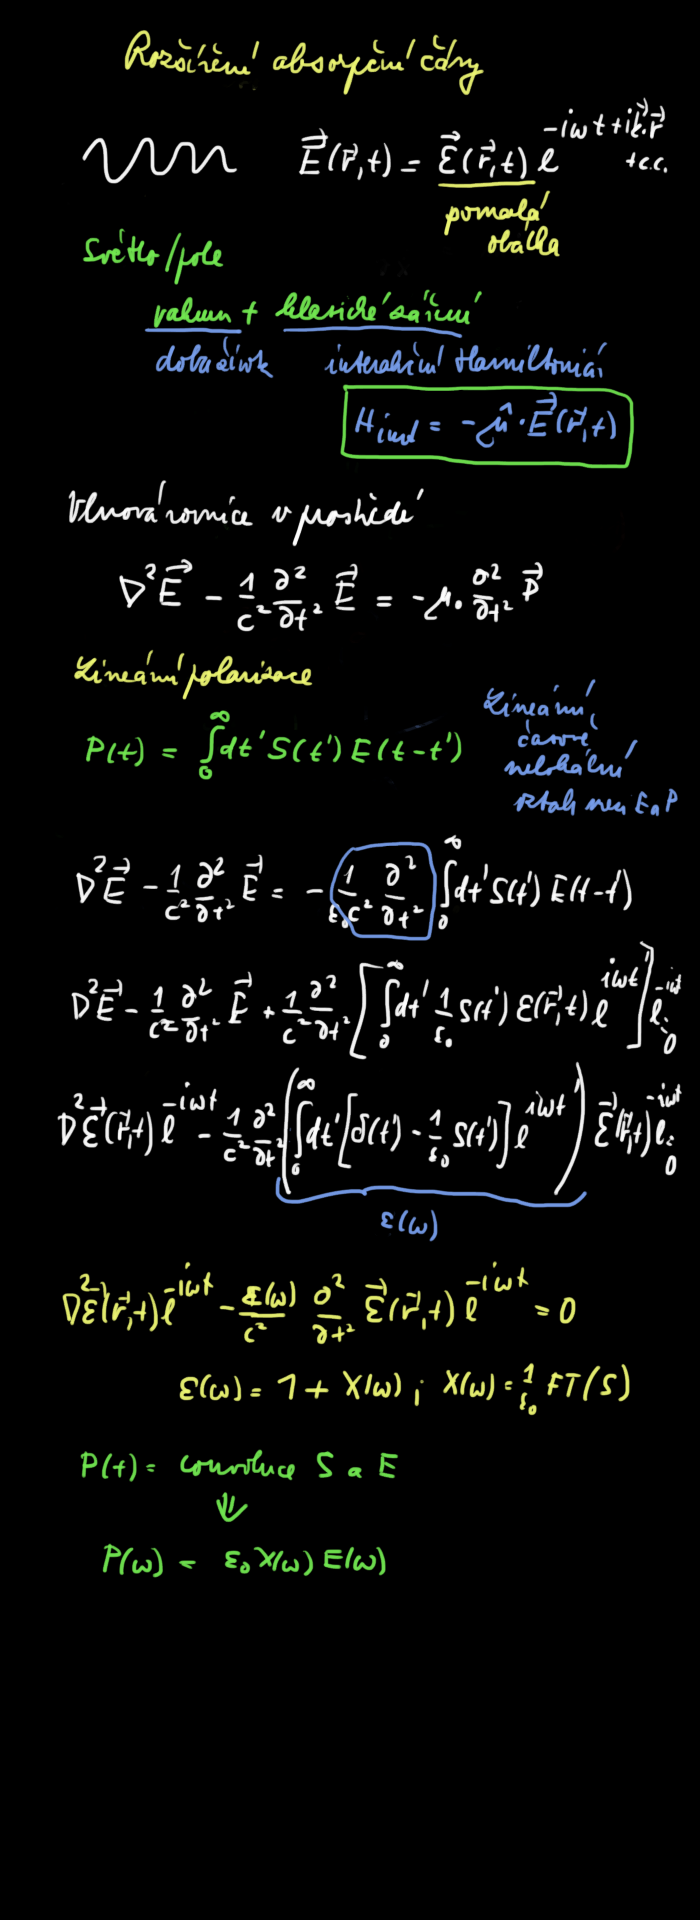 Rozšíření absorpční čáry
E⃗(r⃗,t) = ℰ⃗(r⃗,t) e^{-iωt+ik⃗.r⃗} + c.c.
pomalá
obálka
Světlo/pole
vakuum + klasické záření
interakční Hamiltonián
H_int = -μ̂·E⃗(r⃗,t)
Vlnová rovnice v prostředí
∇²E⃗ - 1/c² ∂²/∂t² E⃗ = -μ₀ ∂²/∂t² P⃗
Lineární polarizace
P(t) = ∫₀^∞ dt' S(t') E(t-t')
Lineární,
časově
nelokální
vztah mezi E a P
∇²E⃗ - 1/c² ∂²/∂t² E⃗ = - 1/(ε₀c²) ∂²/∂t² ∫₀^∞ dt' S(t') E(t-t')
∇²E⃗ - 1/c² ∂²/∂t² E⃗ + 1/c² ∂²/∂t² [∫₀^∞ dt' 1/ε₀ S(t') ℰ(r⃗,t) e^{iωt'}] e^{-iωt} = 0
∇²ℰ⃗(r⃗,t) e^{-iωt} - 1/c² ∂²/∂t² (∫₀^∞ dt' [δ(t') - 1/ε₀ S(t')] e^{iωt'}) ℰ⃗(r⃗,t) e^{-iωt} = 0
ε(ω)
∇²ℰ⃗(r⃗,t) e^{-iωt} - ε(ω)/c² ∂²/∂t² ℰ⃗(r⃗,t) e^{-iωt} = 0
ε(ω) = 1 + χ(ω) ; χ(ω) = 1/ε₀ FT(S)
P(t) = konvoluce S a E
⇓
P(ω) = ε₀ χ(ω) E(ω)